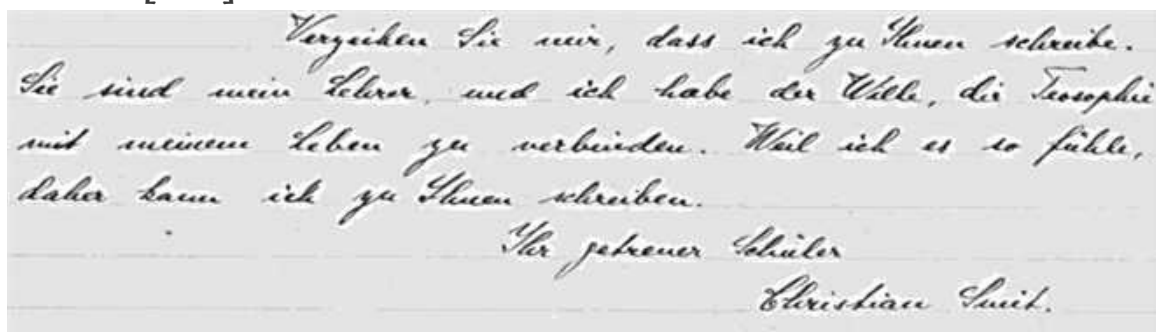 Verzeihen Sie mir, dass ich zu Ihnen schreibe.
Sie sind mein Lehrer, und ich habe der Wille, die Teosophie
mit meinem Leben zu verbinden. Weil ich es so fühle,
daher kann ich zu Ihnen schreiben.
Ihr getreuer Schüler
Christian Smit.